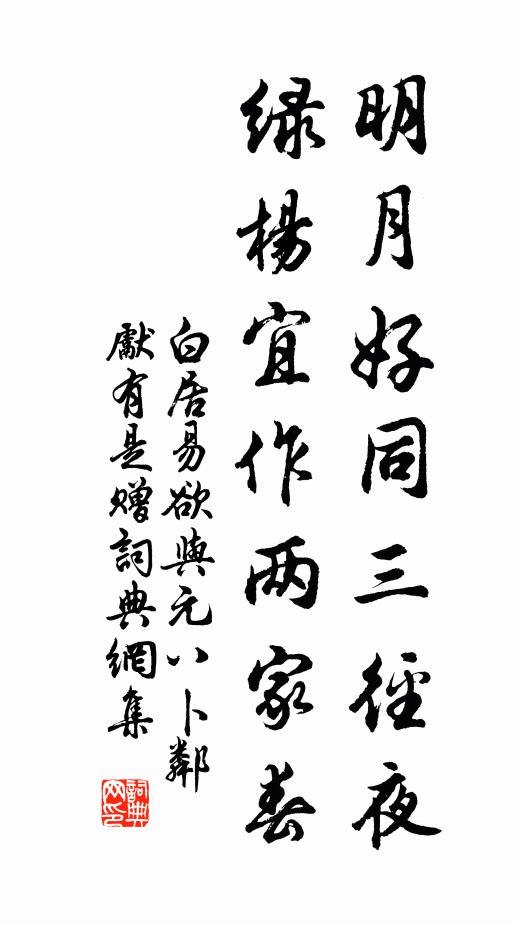 明月好同三徑夜
绿楊宜作两家春
白居易欲與元八卜鄰
獻有是贈詞典網集
詞典网印